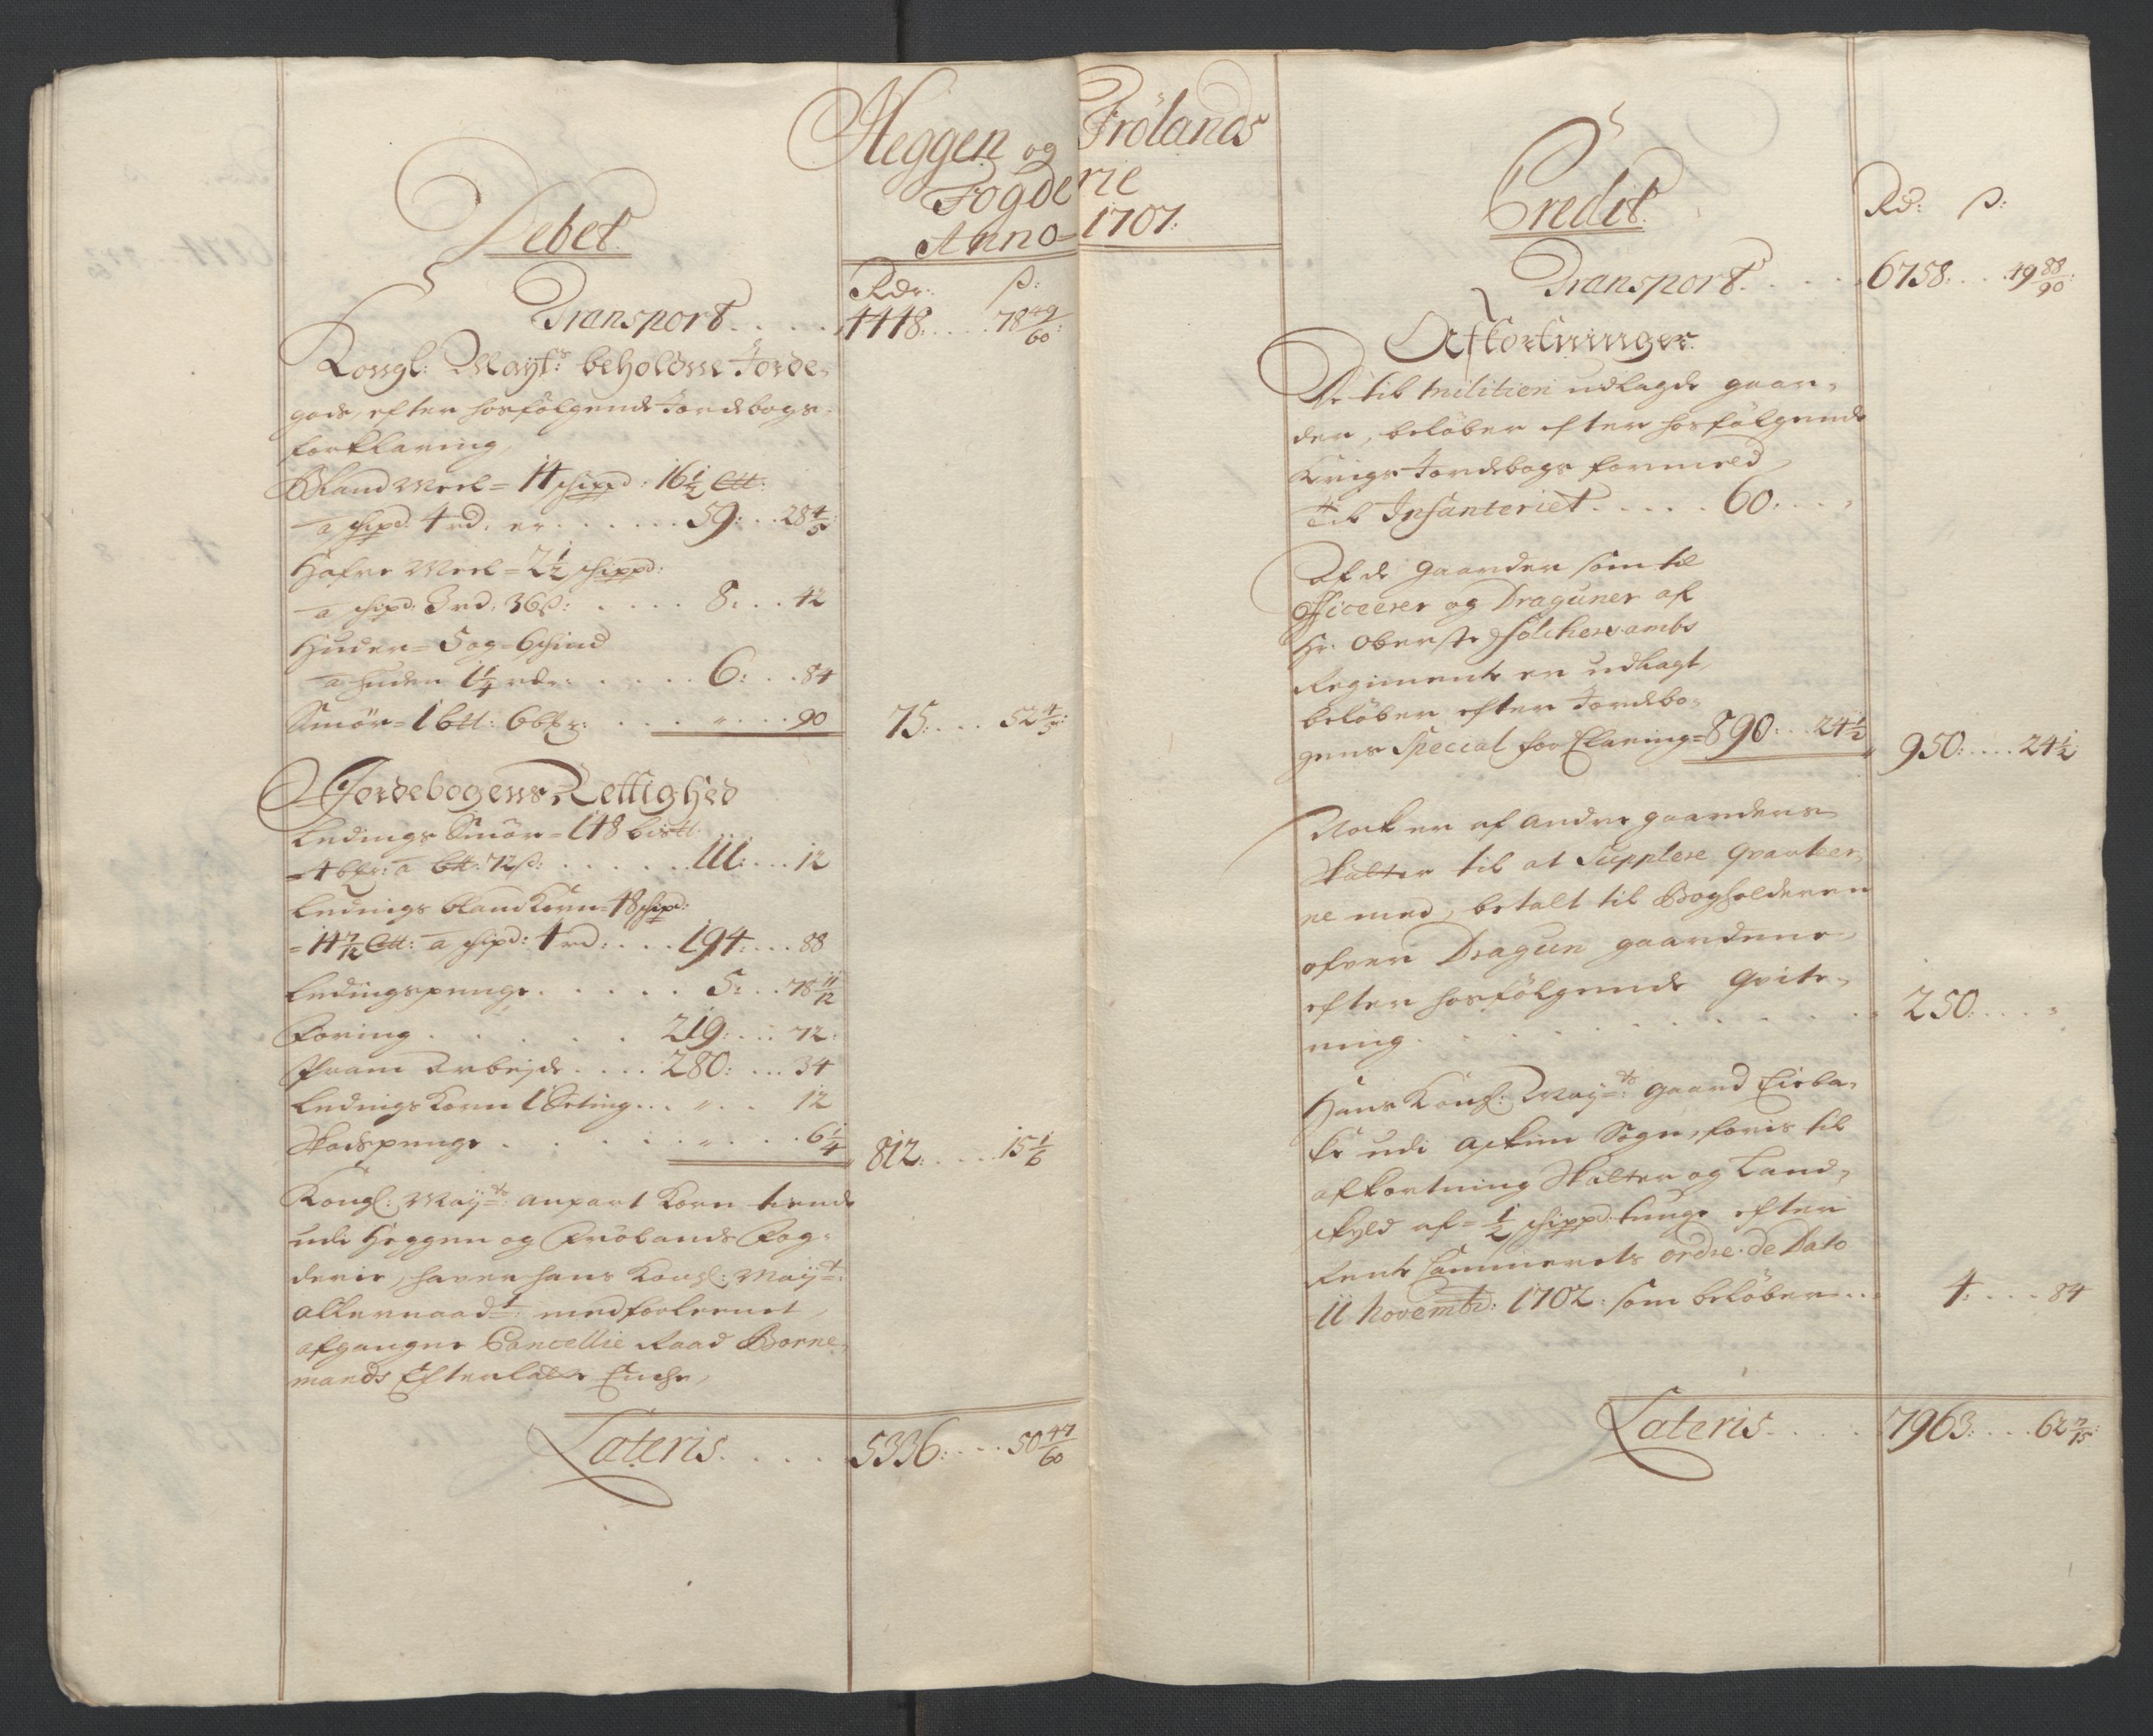 Heggen og Frölands
Fogderie
Anno 1707.
Debet.
Rdr: ß:
Transport. . . . . 4448. . . . 78 49/60:
Kongl: Mayts: beholdne Jorde-
gods, efter hosfølgende Jordebogs-
forklaring,
Bland Meel = 14 schippd: 16½ Ltt:
a schipd: 4 rd: er . . . . . . 59: . . 28 4/5
Hafre Meel = 2½ schippd:
a schipd: 3 rd: 36 ß: . . . . . 8: . . 42
Huder = 5 og = 6 schind
a huden 1¼ rdr: . . . . . 6: . . 84
Smör = 1 btt: 6 bkr: . . . . " . . . 90 75: . . . 52 4/5:
Jordebogens Rettighed
Ledings Smör = 148 bistt:
= 4 bkr: a btt: 72 ß: . . . . . . 111: . . . 12
Ledings bland Korn = 48 schipd:
= 14 7/12 Ltt: a schipd: 4 rd: . . . 194: . . . 88
Ledingspenge . . . . . . 5: . . 78 11/12
Foring . . . . . . 219: . . . 72:
Pram Arbejde . . . . 280: . . . 34
Ledings Korn 1 Setting . . . " . . 12
Skadspenge . . . . . " . . . . 6¼ 812: . . . . 15 1/6
Kongl: May:ts anpart Korn tiende
udi Heggen og Frölands Fog-
derie, haver hans Kongl: May:t:
allernaad:t medforleenet
afgangne Cancellie Raad Borne-
mands Efterladte Enche,
Lateris. . . . . 5336: . . . 50 47/60
Credit.
Rd: ß:
Transport. . . . . 6758: . . . 49 88/90:
Afkortninger.
De til militien udlagde gaar-
der, beløber efter hosfølgende
Krigs Jordebogs formeld,
Til Infanteriet. . . . . . 60: . . . "
Af de gaarder som til
Officerer og Draguner af
Hr: Oberste
Regimente er udlagt,
beløber efter Jordebo-
gens Special forklaring = 890: . . 24½ 950: . . . . 24½
Nock er af andre gaarders
Skatter til at Supplere qvarteer-
ne med, betalt til Bogholderen
ofver Dragun gaarderne,
efter hosfølgende qvite-
ring . . . . . . . . . . 250: . . . "
Hans Kongl: May:ts gaard
udi Sogn, foris til
afkortning Skatter og Land-
skyld af = ½ schippd: tunge efter
Rente Cammerets ordre de Dato
11 Novembr: 1702: som beløber . . . 4: . . . . 84
Lateris. . . . . 7963: . . . 62 7/15: